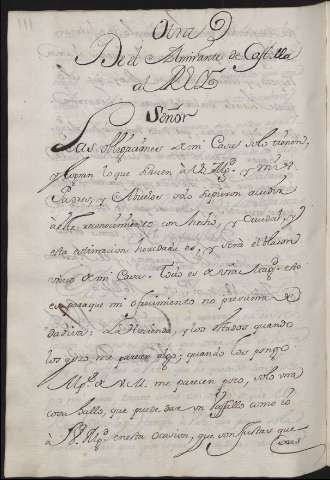 Otra
De el Almirante de Castilla
al Rey
Señor
Las obligaciones de mi Casa solo tienen,
y logran lo que sirven à V. Mag.d y mis
Padres, y Abuelos solo supieron acudir
à este reconocimiento con hecho, y Cuidad, y
esta estimacion heredada es, y será el blason
unico de mi Casa. Todo es de Vra Mag.d esto
es para que mi ofrecimiento no presuma de
dadiva: La Hacienda, y los estados quando
los gozo me parecen algo; quando los pongo
Mag.d à V.M. me parecen poco, solo una
cosa hallo, que puede dar un Vasallo como io
à V. Mag.d en esta Ocasion, que son justas que